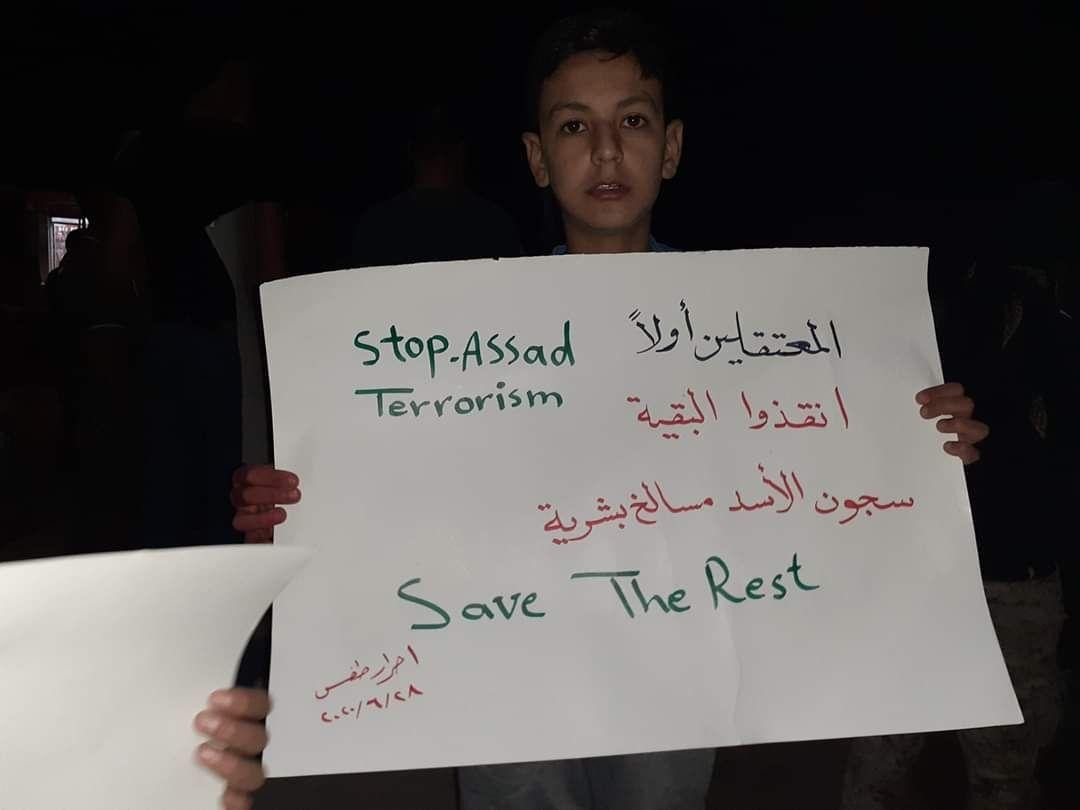 Stop-Assad
Terrorism
المعتقلين أولاً
انقذوا البقية
سجون الأسد مسالخ بشرية
Save The Rest
احرار طفس
٢٠٢٠/٦/٢٨